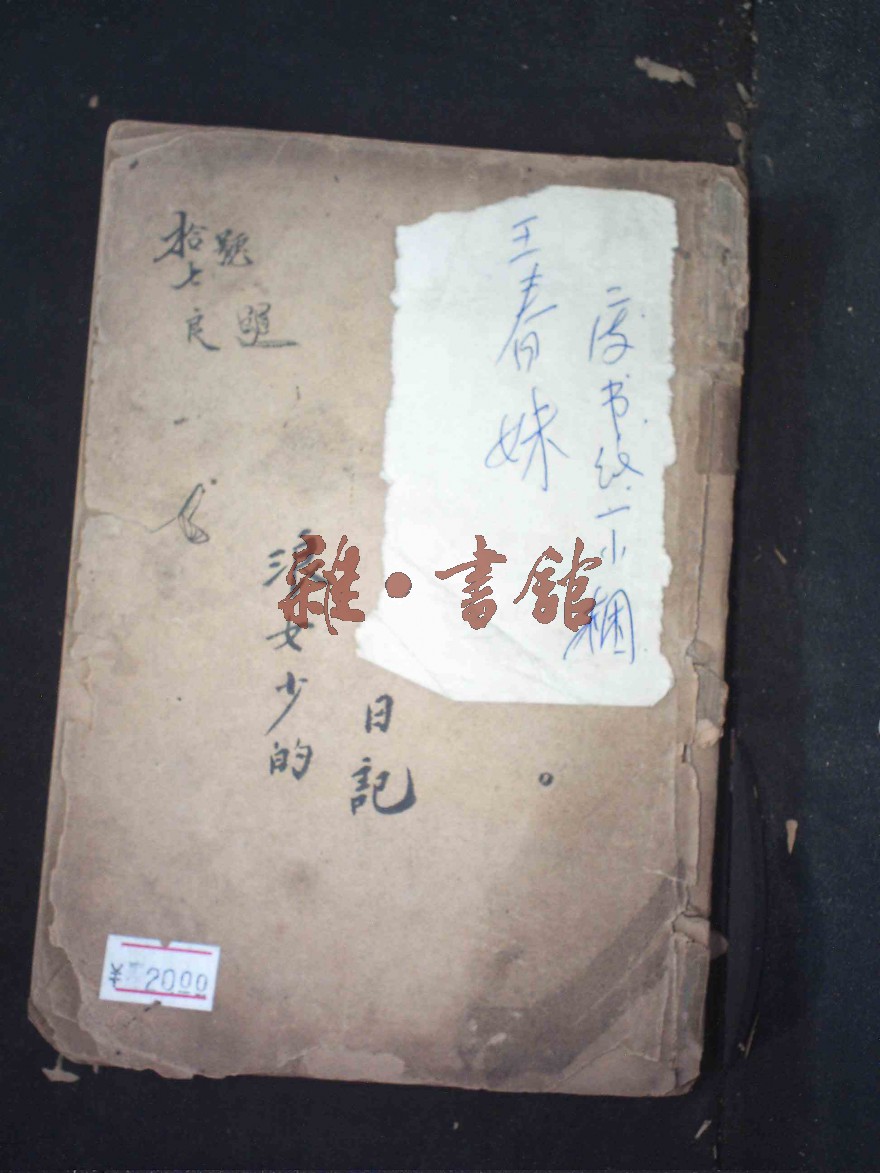 王春妹
废书纸一小捆
拾號
七
良
浪女少的
日記
雜·書館
¥20.00